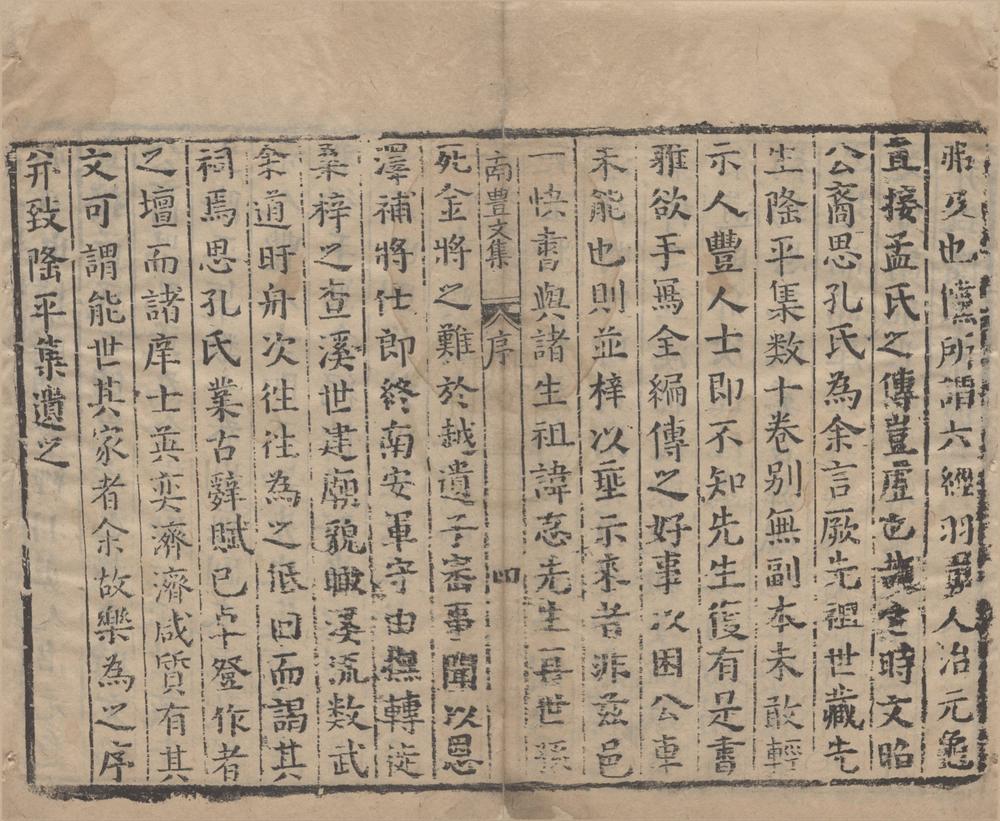 邪及也儻所謂六經羽翼人冶元龜
直接孟氏之傳豈虛也哉時文昭
公裔思孔氏為余言厥先祖世藏先
生隆平集數十卷別無副本未敢輕
示人豐人士即不知先生復有是書
雅欲手爲全編傳之好事以困公車
未能也則並梓以垂示來者非茲邑
一快書與諸生祖諱忞先生再世孫
南豊文集 序 四
死金將之難於越遺子窑事聞以恩
澤補將仕郎終南安軍守由撫轉徙
桑梓之查溪世建廟貌瞰溪流數武
余道盱舟次徃徃為之低回而謁其
祠焉思孔氏業古辭賦已卓登作者
之壇而諸庠士英奕濟濟咸質有其
文可謂能世其家者余故樂為之序
弁致隆平集遺之